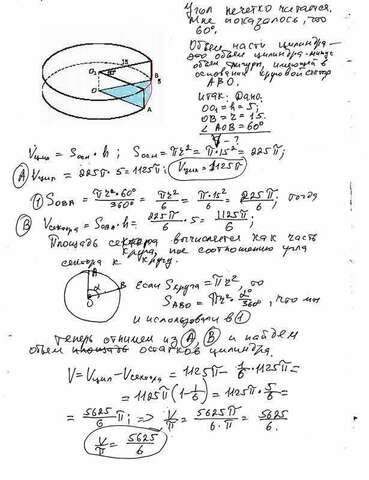 Угол нечетко читается.
Мне показалось, что
60°.
Объем части цилиндра —
это объем цилиндра минус
объем фигуры, имеющей в
основании круговой сектор
АВО.
Итак: Дано:
OO₁ = h = 5;
OB = r = 15.
∠AOB = 60°
V/π - ?
15
O₁
60°
O
B
5
A
Vцил = Sосн · h; Sосн = πr² = π·15² = 225π;
Ⓐ Vцил = 225π · 5 = 1125π; Vцил = 1125π
① SОВА = πr²·60°/360° = πr²/6 = π·15²/6 = 225π/6; тогда
Ⓑ Vсектора = SОВА · h = 225π/6 · 5 = 1125π/6;
Площадь сектора вычисляется как часть
круга, по соотношению угла
сектора к кругу.
A
α
B
O
если Sкруга = πr², то
SАВО = πr² · α°/360°, что мы
и использовали в ①
Теперь отнимем из Ⓐ Ⓑ и найдем
объем остатков цилиндра.
V = Vцил - Vсектора = 1125π - 1/6 · 1125π =
= 1125π(1 - 1/6) = 1125π · 5/6 =
= 5625/6 π; => V/π = 5625π/6·π = 5625/6.
V/π = 5625/6